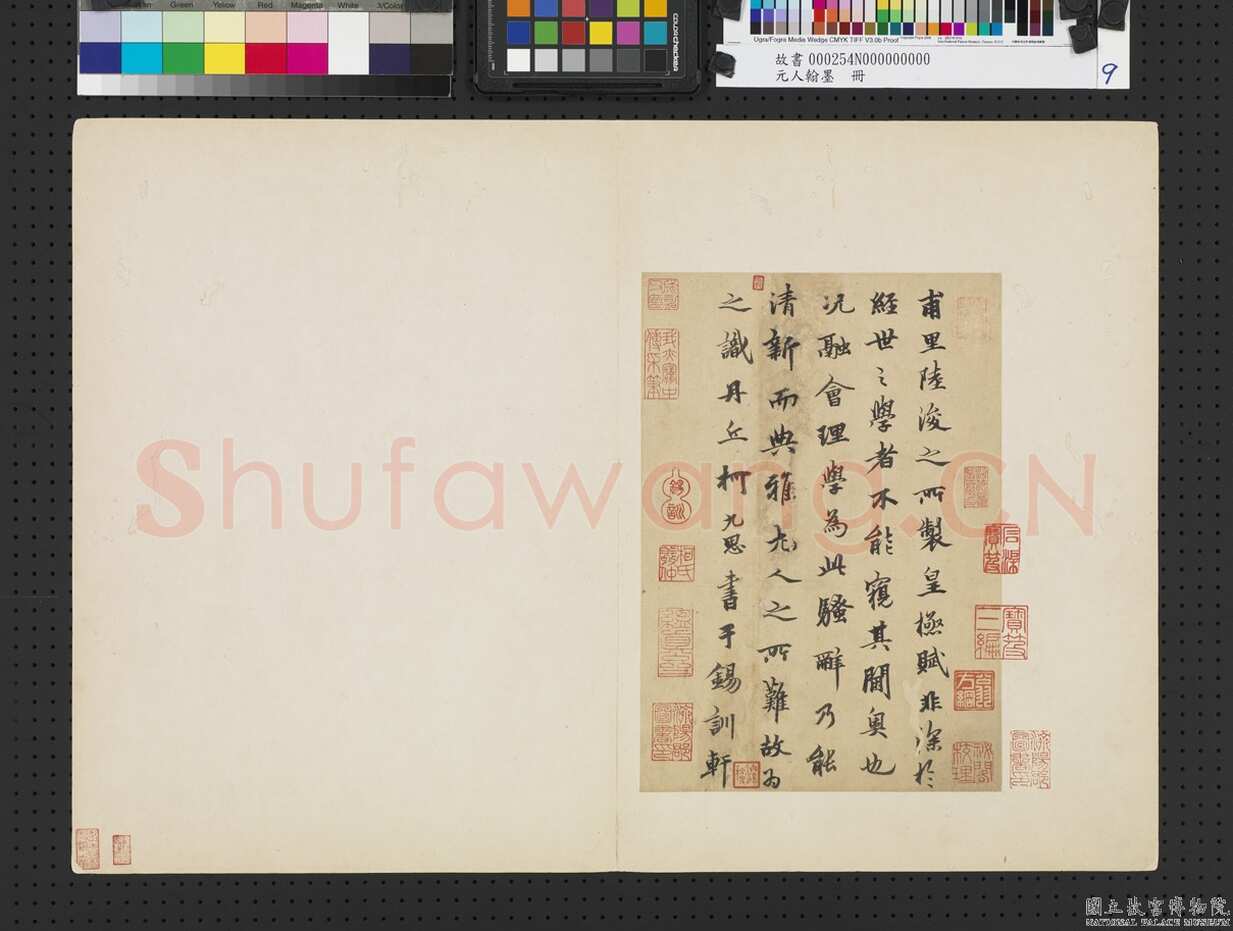 Green Yellow Red Magenta White 3/Color
colorchecker
Ugra/Fogra Media Wedge CMYK TIFF V3.0b Proof
故書 000254N000000000
元人翰墨 冊
9
甫里陸浚之所製皇極賦非深於
經世之學者不能窺其閫奧也
況融會理學為此騷辭乃能
清新而典雅尤人之所難故為
之識丹丘柯九思書于錫訓軒
錫訓
柯氏敬仲
寶笈三編
Shufawang.CN
國立故宮博物院
NATIONAL PALACE MUSEUM